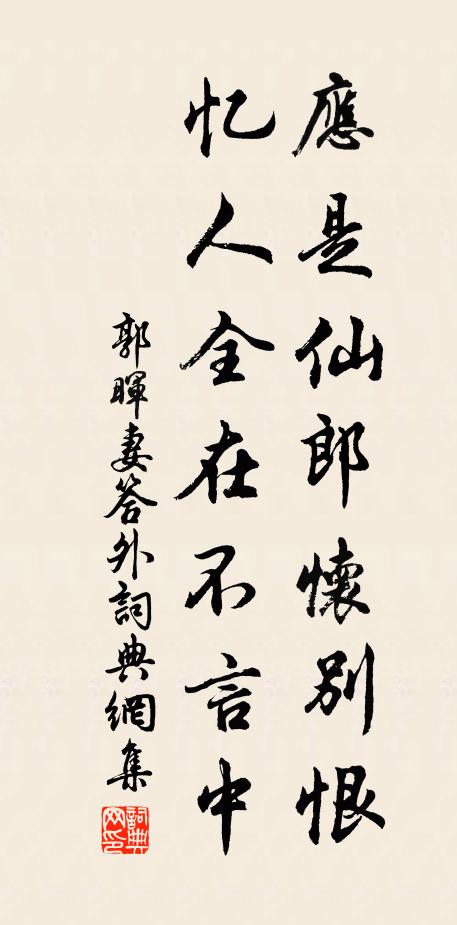 應是仙郎懷別恨
忆人全在不言中
郭暉妻答外詞典網集
詞典网印